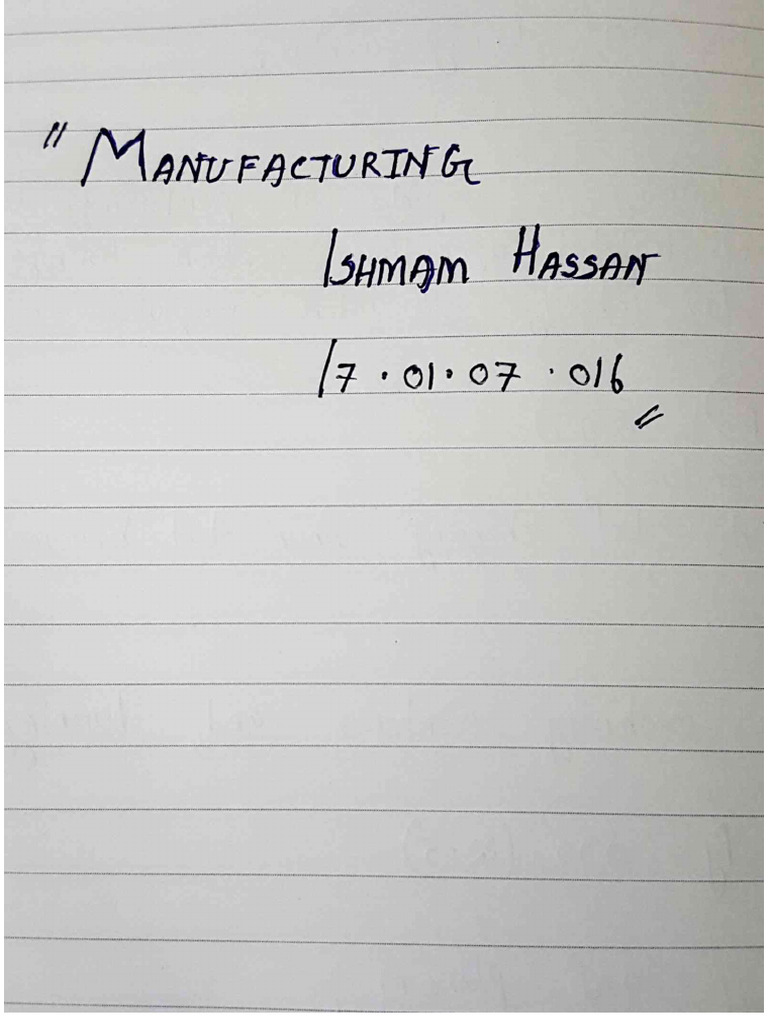 "MANUFACTURING
ISHMAM HASSAN
17.01.07.016
"